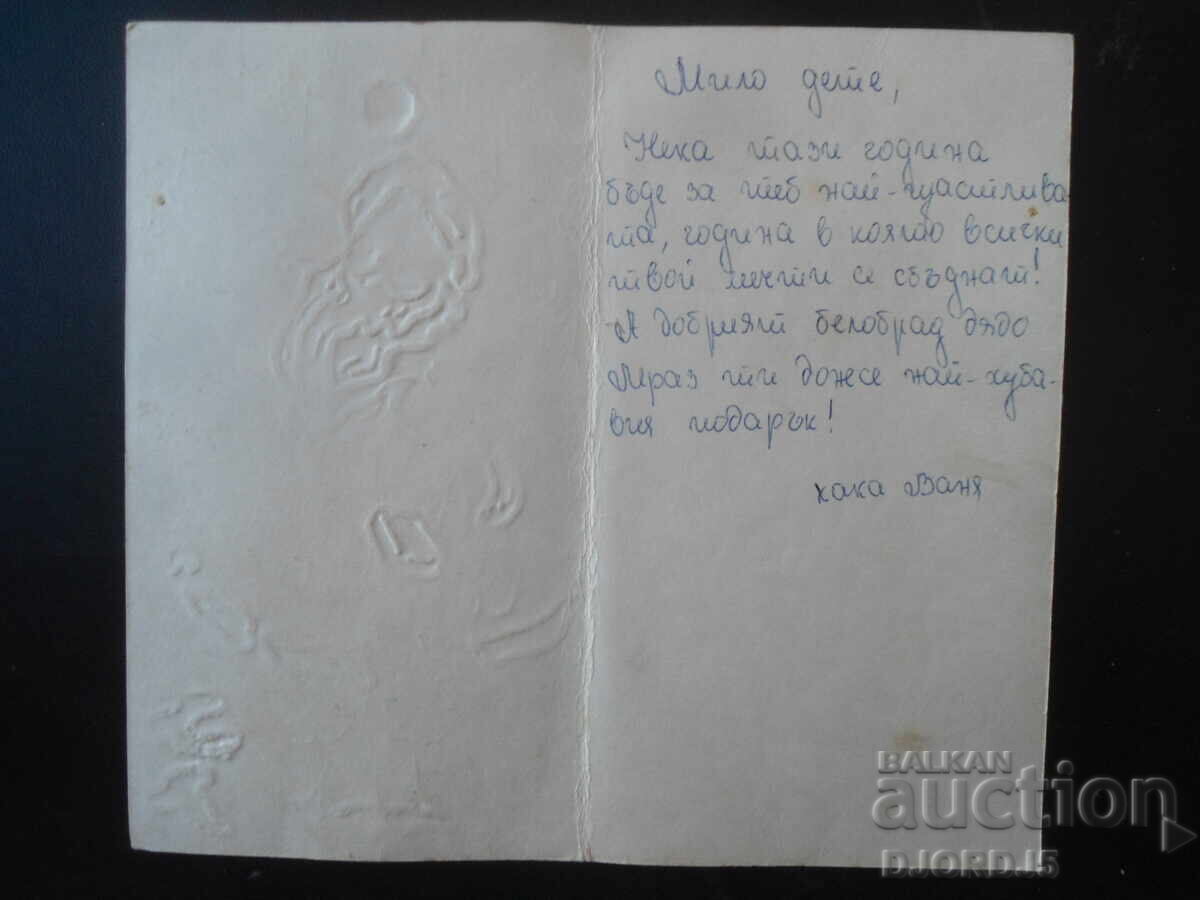 Мило дете,
Нека тази година
бъде за теб най-щастлива-
та, година в която всички
твой мечти се сбъднат!
А добрият белобрад дядо
Мраз ти донесе най-хуба-
вия подарък!
кака Ваня
BALKAN
auction
DJORD.J5